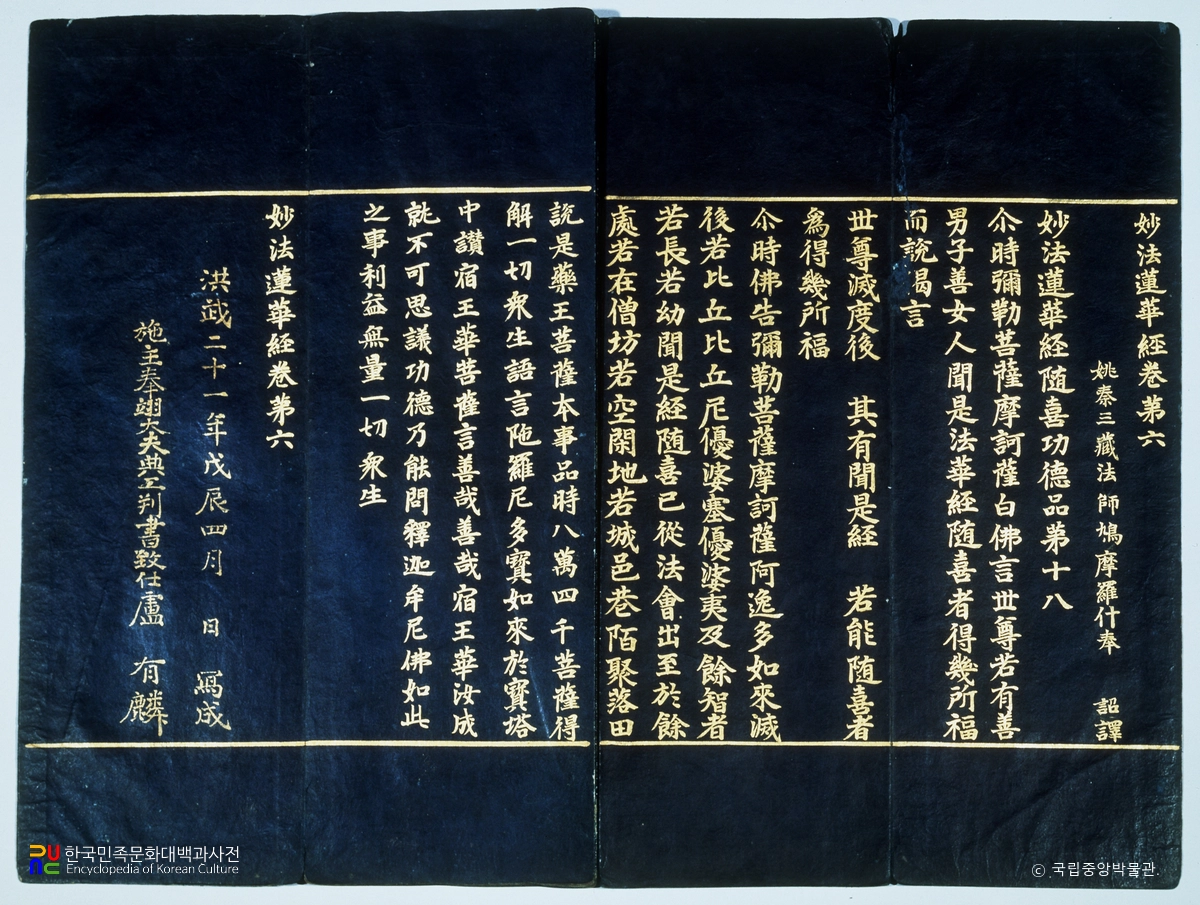 妙法蓮華經卷第六
姚秦三藏法師鳩摩羅什奉 詔譯
妙法蓮華経随喜功德品第十八
尒時彌勒菩薩摩訶薩白佛言世尊若有善
男子善女人聞是法華経随喜者得幾所福
而說偈言
世尊滅度後 其有聞是経 若能随喜者
爲得幾所福
尒時佛告彌勒菩薩摩訶薩阿逸多如來滅
後若比丘比丘尼優婆塞優婆夷及餘智者
若長若幼聞是経随喜已從法會出至於餘
處若在僧坊若空閑地若城邑巷陌聚落田
說是藥王菩薩本事品時八萬四千菩薩得
解一切衆生語言陁羅尼多寶如來於寶塔
中讚宿王華菩薩言善哉善哉宿王華汝成
就不可思議功德乃能問釋迦牟尼佛如此
之事利益無量一切衆生
妙法蓮華経卷第六
洪武二十一年戊辰四月 日 寫成
施主奉翊大夫典工判書致仕盧 有麟
한국민족문화대백과사전
Encyclopedia of Korean Culture
© 국립중앙박물관